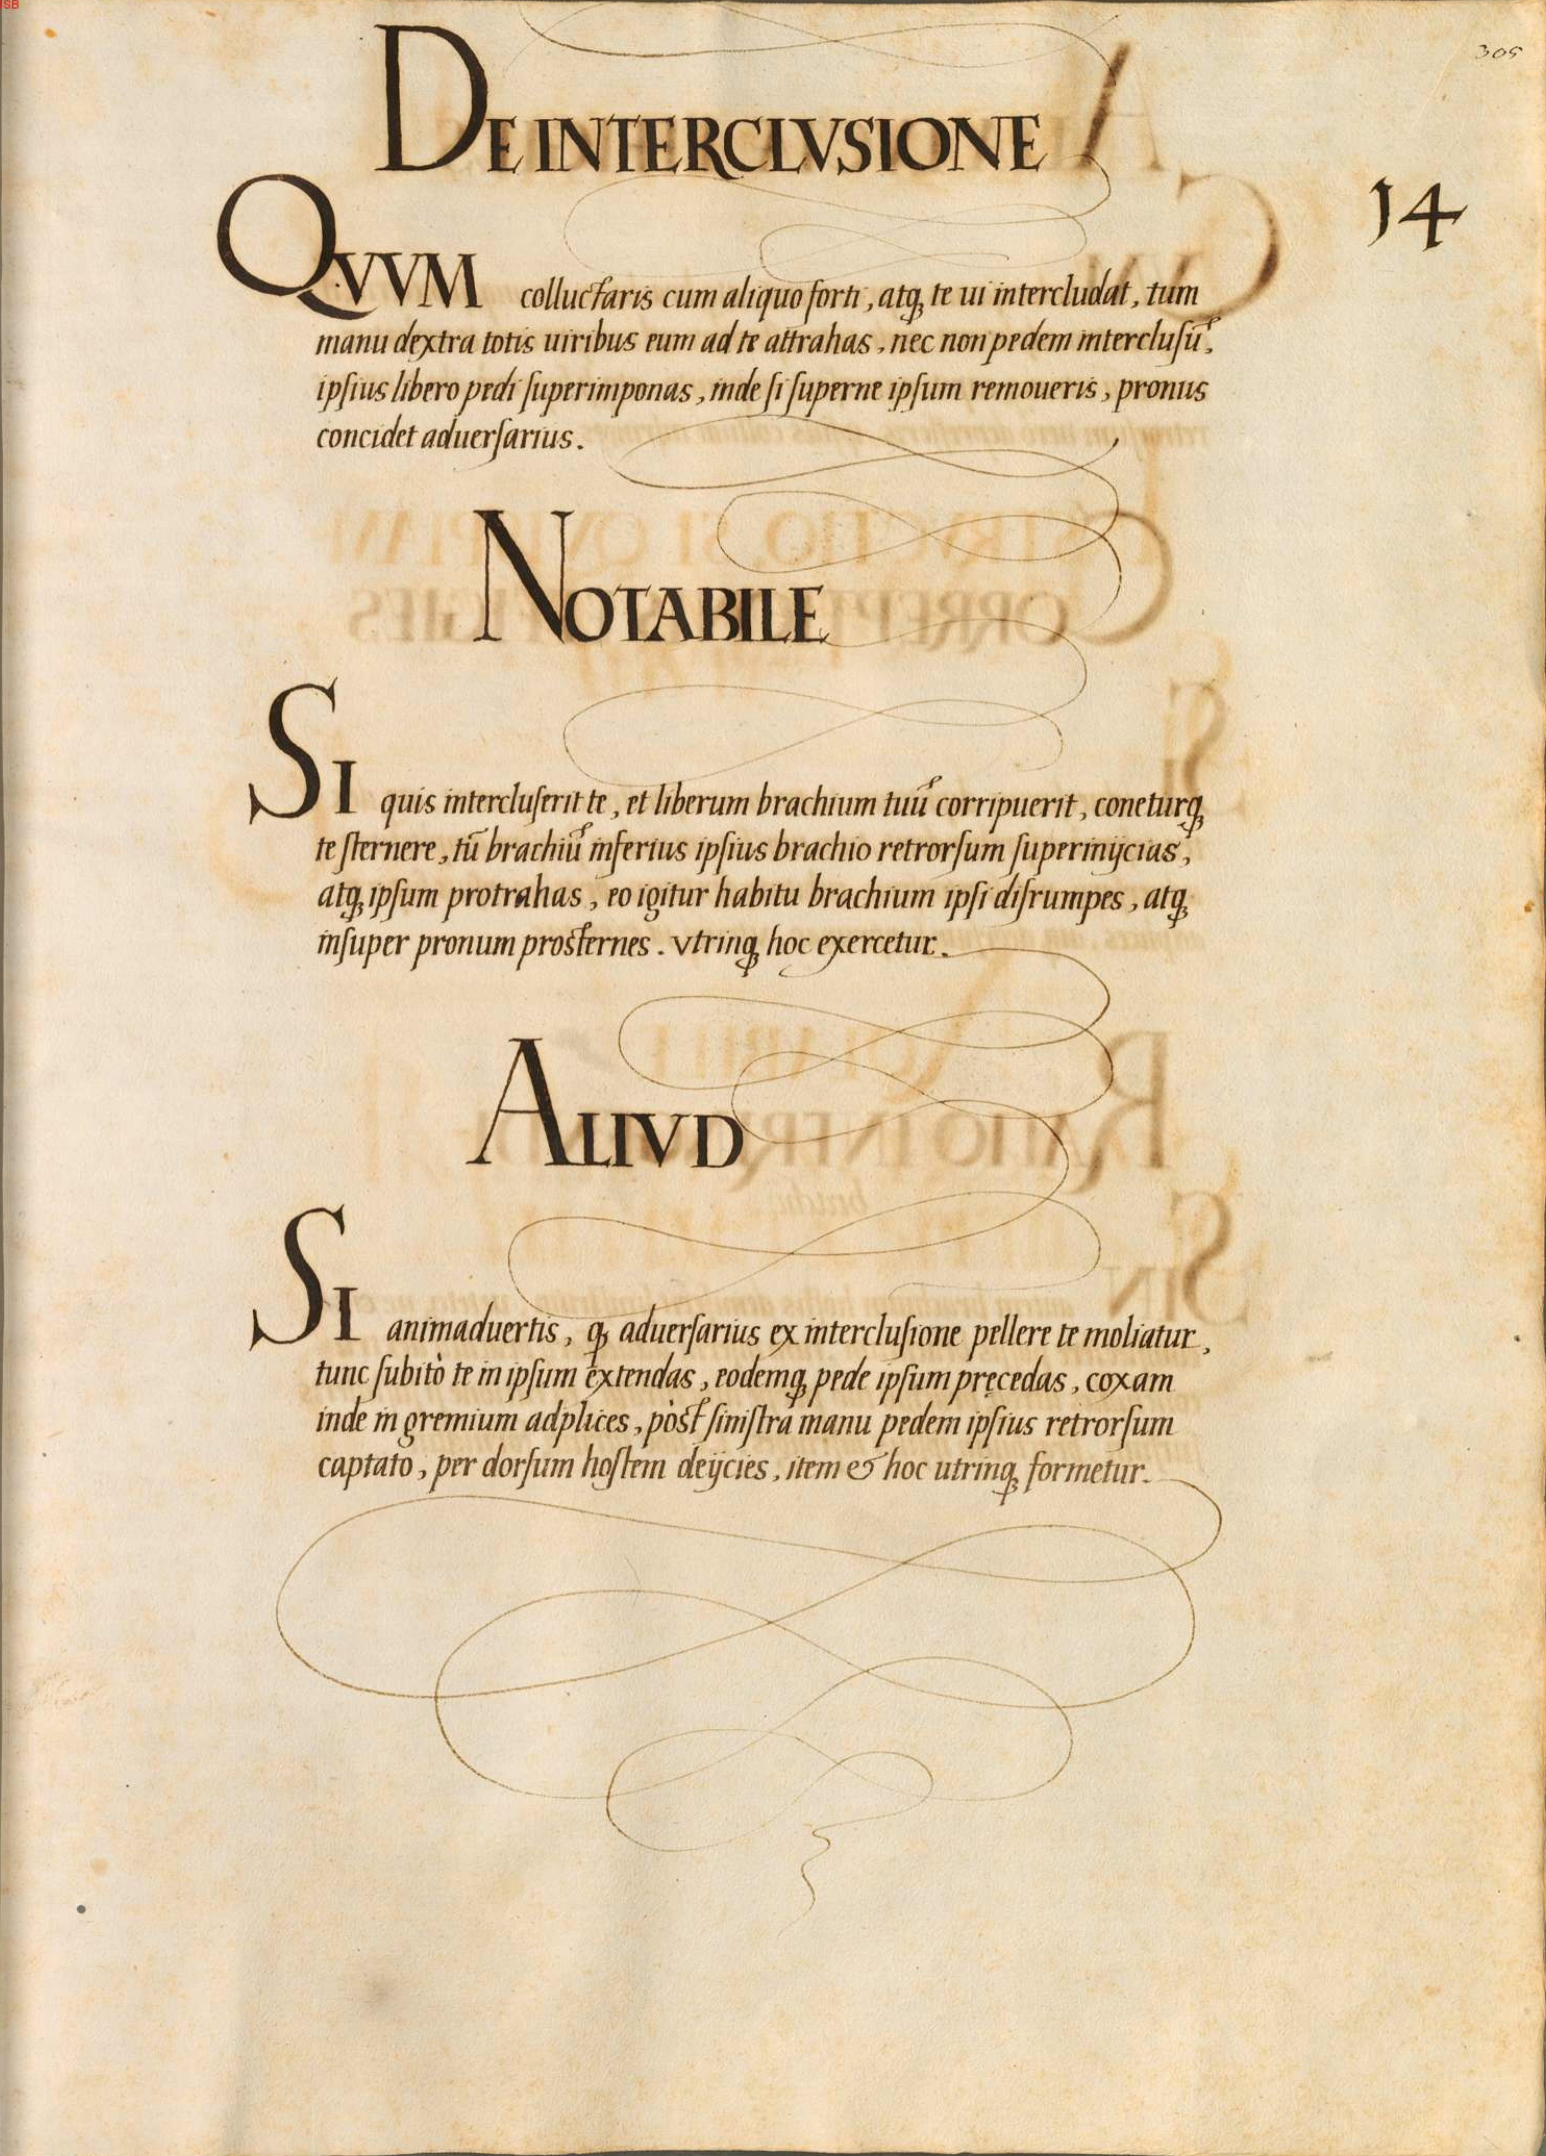 305
DE INTERCLVSIONE
14
QVVM colluctaris cum aliquo forti, atq; te ui intercludat, tum
manu dextra totis uiribus eum ad te attrahas, nec non pedem interclusũ,
ipsius libero pedi superimponas, inde si superne ipsum remoueris, pronus
concidet aduersarius.
NOTABILE
SI quis intercluserit te, et liberum brachium tuũ corripuerit, coneturq;
te sternere, tũ brachiũ inferius ipsius brachio retrorsum superinijcias,
atq; ipsum protrahas, eo igitur habitu brachium ipsi disrumpes, atq;
insuper pronum prosternes. Vtrinq; hoc exercetur.
ALIVD
SI animaduertis, q; aduersarius ex interclusione pellere te moliatur,
tunc subitò te in ipsum extendas, eodemq; pede ipsum pręcedas, coxam
inde in gremium adplices, pòst sinistra manu pedem ipsius retrorsum
captato, per dorsum hostem deijcies, item & hoc utrinq; formetur.